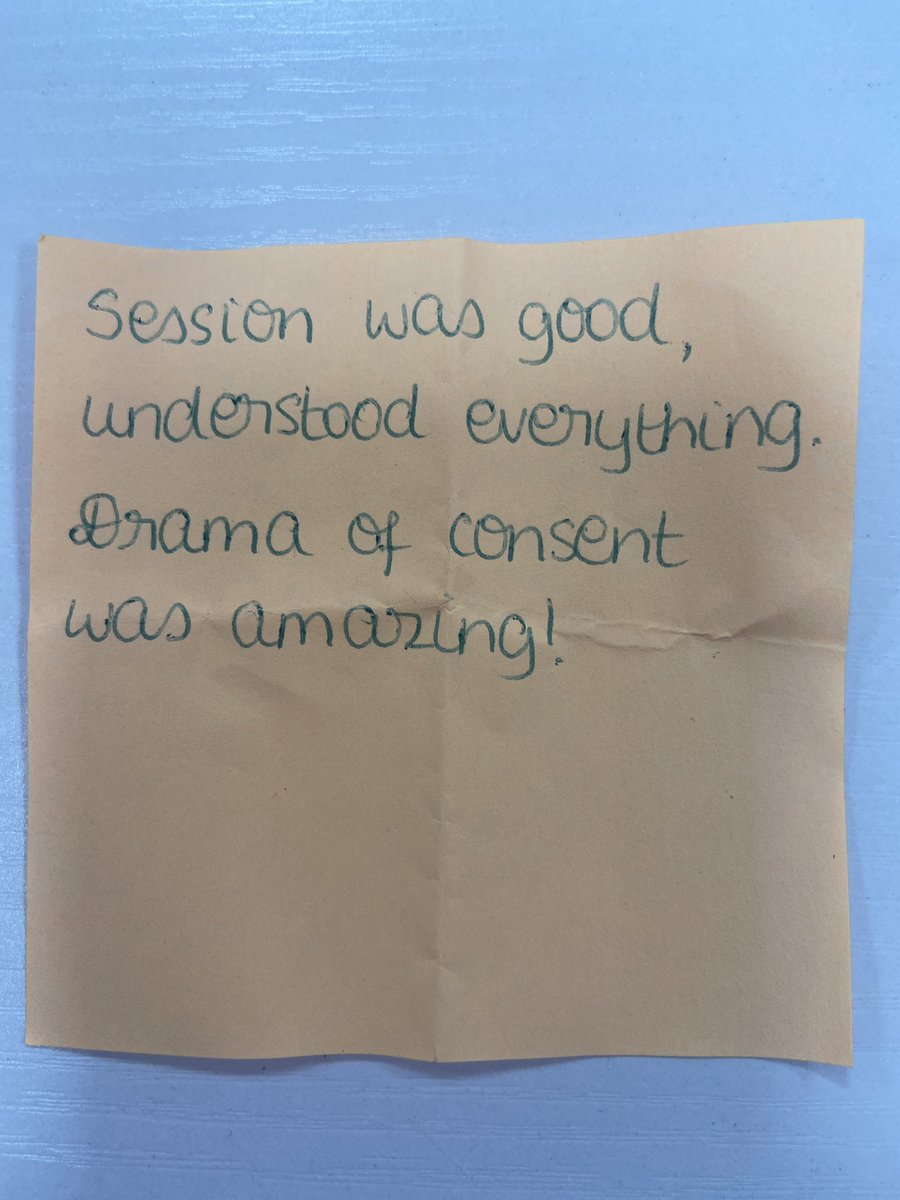 Session was good,
understood everything.
Drama of consent
was amazing!